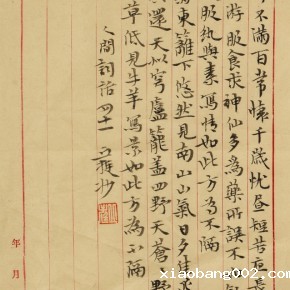 不滿百常懷千歲忧晝短苦夜長
游服食求神仙多為藥所誤不
服紈與素寫情如此方為不隔
東籬下悠然見南山山氣日夕佳
還天似穹廬籠蓋四野天蒼野
草低見牛羊寫景如此方為不隔
人間詞話四十一
抄
年 月
xiaobang002.com